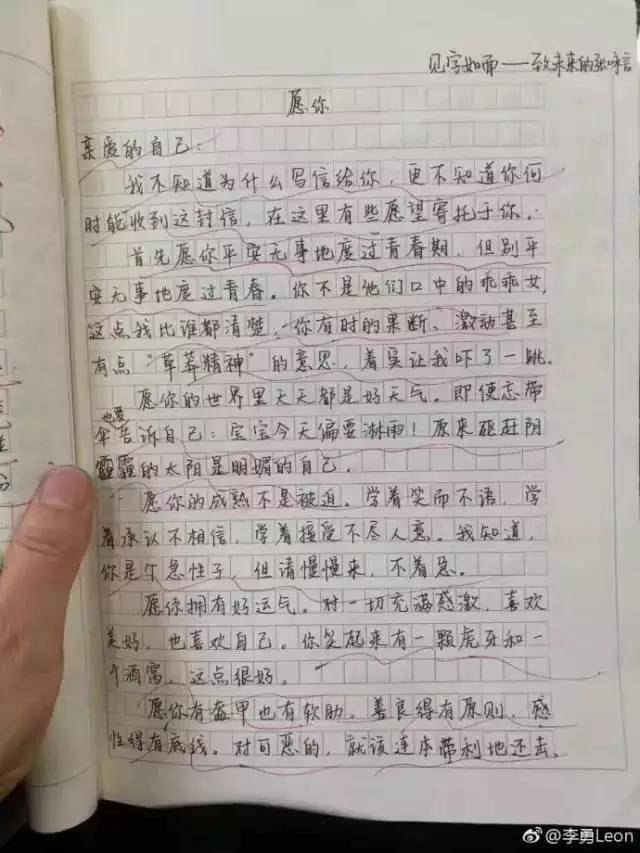 见字如面——致未来的张咏言
愿你
亲爱的自己：
我不知道为什么写信给你，更不知道你何
时能收到这封信，在这里有些愿望寄托于你。
首先愿你平安无事地度过青春期，但别平
安无事地度过青春。你不是他们口中的乖乖女，
这点我比谁都清楚，你有时的果断、激动甚至
有点“草莽精神”的意思，着实让我吓了一跳。
愿你的世界里天天都是好天气。即便忘带
伞也要告诉自己：宝宝今天偏要淋雨！原来驱赶阴
霾的太阳是明媚的自己。
愿你的成熟不是被迫。学着笑而不语，学
着承认不相信，学着接受不尽人意。我知道，
你是个急性子，但请慢慢来，不着急。
愿你拥有好运气。对一切充满感激，喜欢
美好，也喜欢自己。你笑起来有一颗虎牙和一
个酒窝，这点很好。
愿你有盔甲也有软肋。善良得有原则，感
性得有底线。对可恶的，就该连本带利地还去。
@李勇Leon